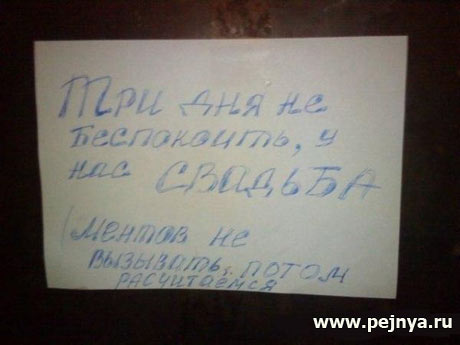 Три дня не
беспокоить, у
нас СВАДЬБА
(Ментов не
вызывать, потом
расчитаемся
www.pejnya.ru